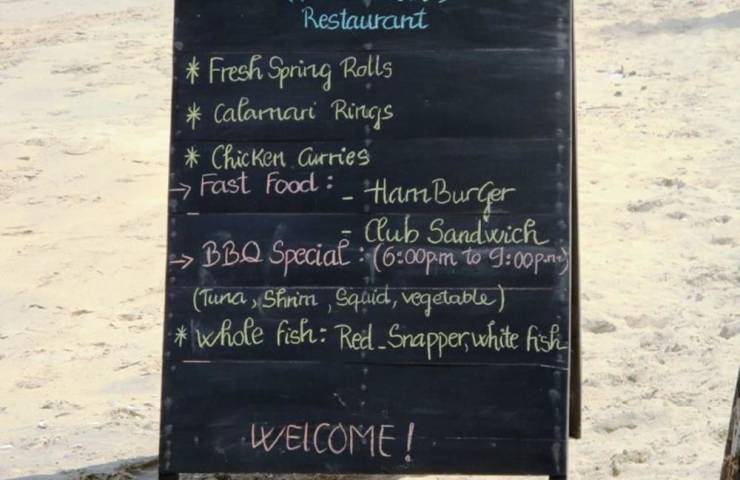 Restaurant
* Fresh Spring Rolls
* Calamari Rings
* Chicken Curries
→ Fast Food : - HamBurger
- Club Sandwich
→ BBQ Special : (6:00pm to 9:00p.m)
(Tuna, Shrim, Squid, vegetable)
* Whole fish: Red-Snapper, white fish
WELCOME!